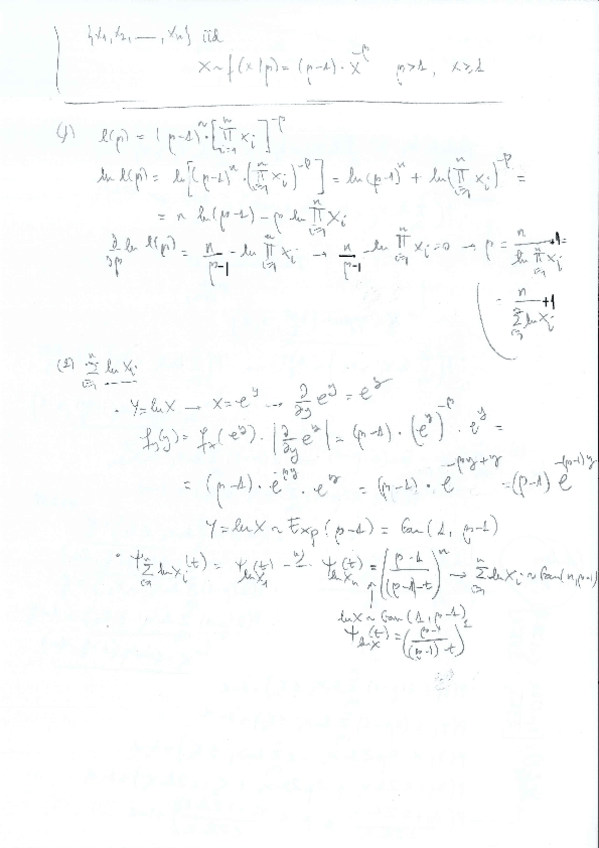 {x₁, x₂, —, xₙ} iid
X ~ f(x|p) = (p-1) · x^{-p}   p>1, x≥1
(1) l(p) = (p-1)^n · [∏_{i=1}^n x_i]^{-p}
ln l(p) = ln[(p-1)^n · (∏_{i=1}^n x_i)^{-p}] = ln(p-1)^n + ln(∏_{i=1}^n x_i)^{-p} =
= n ln(p-1) - p ln ∏_{i=1}^n x_i
∂/∂p ln l(p) = n/(p-1) - ln ∏_{i=1}^n x_i → n/(p-1) - ln ∏_{i=1}^n x_i = 0 → p = n/(ln ∏_{i=1}^n x_i) +1 =
= n/(∑_{i=1}^n ln x_i) +1
(2) ∑_{i=1}^n ln x_i
· Y = ln X → X = e^y → ∂/∂y e^y = e^y
f_y(y) = f_x(e^y) · |∂/∂y e^y| = (p-1) · (e^y)^{-p} · e^y =
= (p-1) · e^{-py} · e^y = (p-1) · e^{-py+y} = (p-1) e^{-(p-1)y}
Y = ln X ~ Exp(p-1) = Gam(1, p-1)
· Ψ_{∑_{i=1}^n ln x_i}(t) = Ψ_{ln x₁}(t) · Ψ_{ln xₙ}(t) = ((p-1)/((p-1)-t))^n → ∑_{i=1}^n ln x_i ~ Gam(n, p-1)
ln X ~ Gam(1, p-1)
Ψ_{ln X}(t) = ((p-1)/((p-1)-t))^1